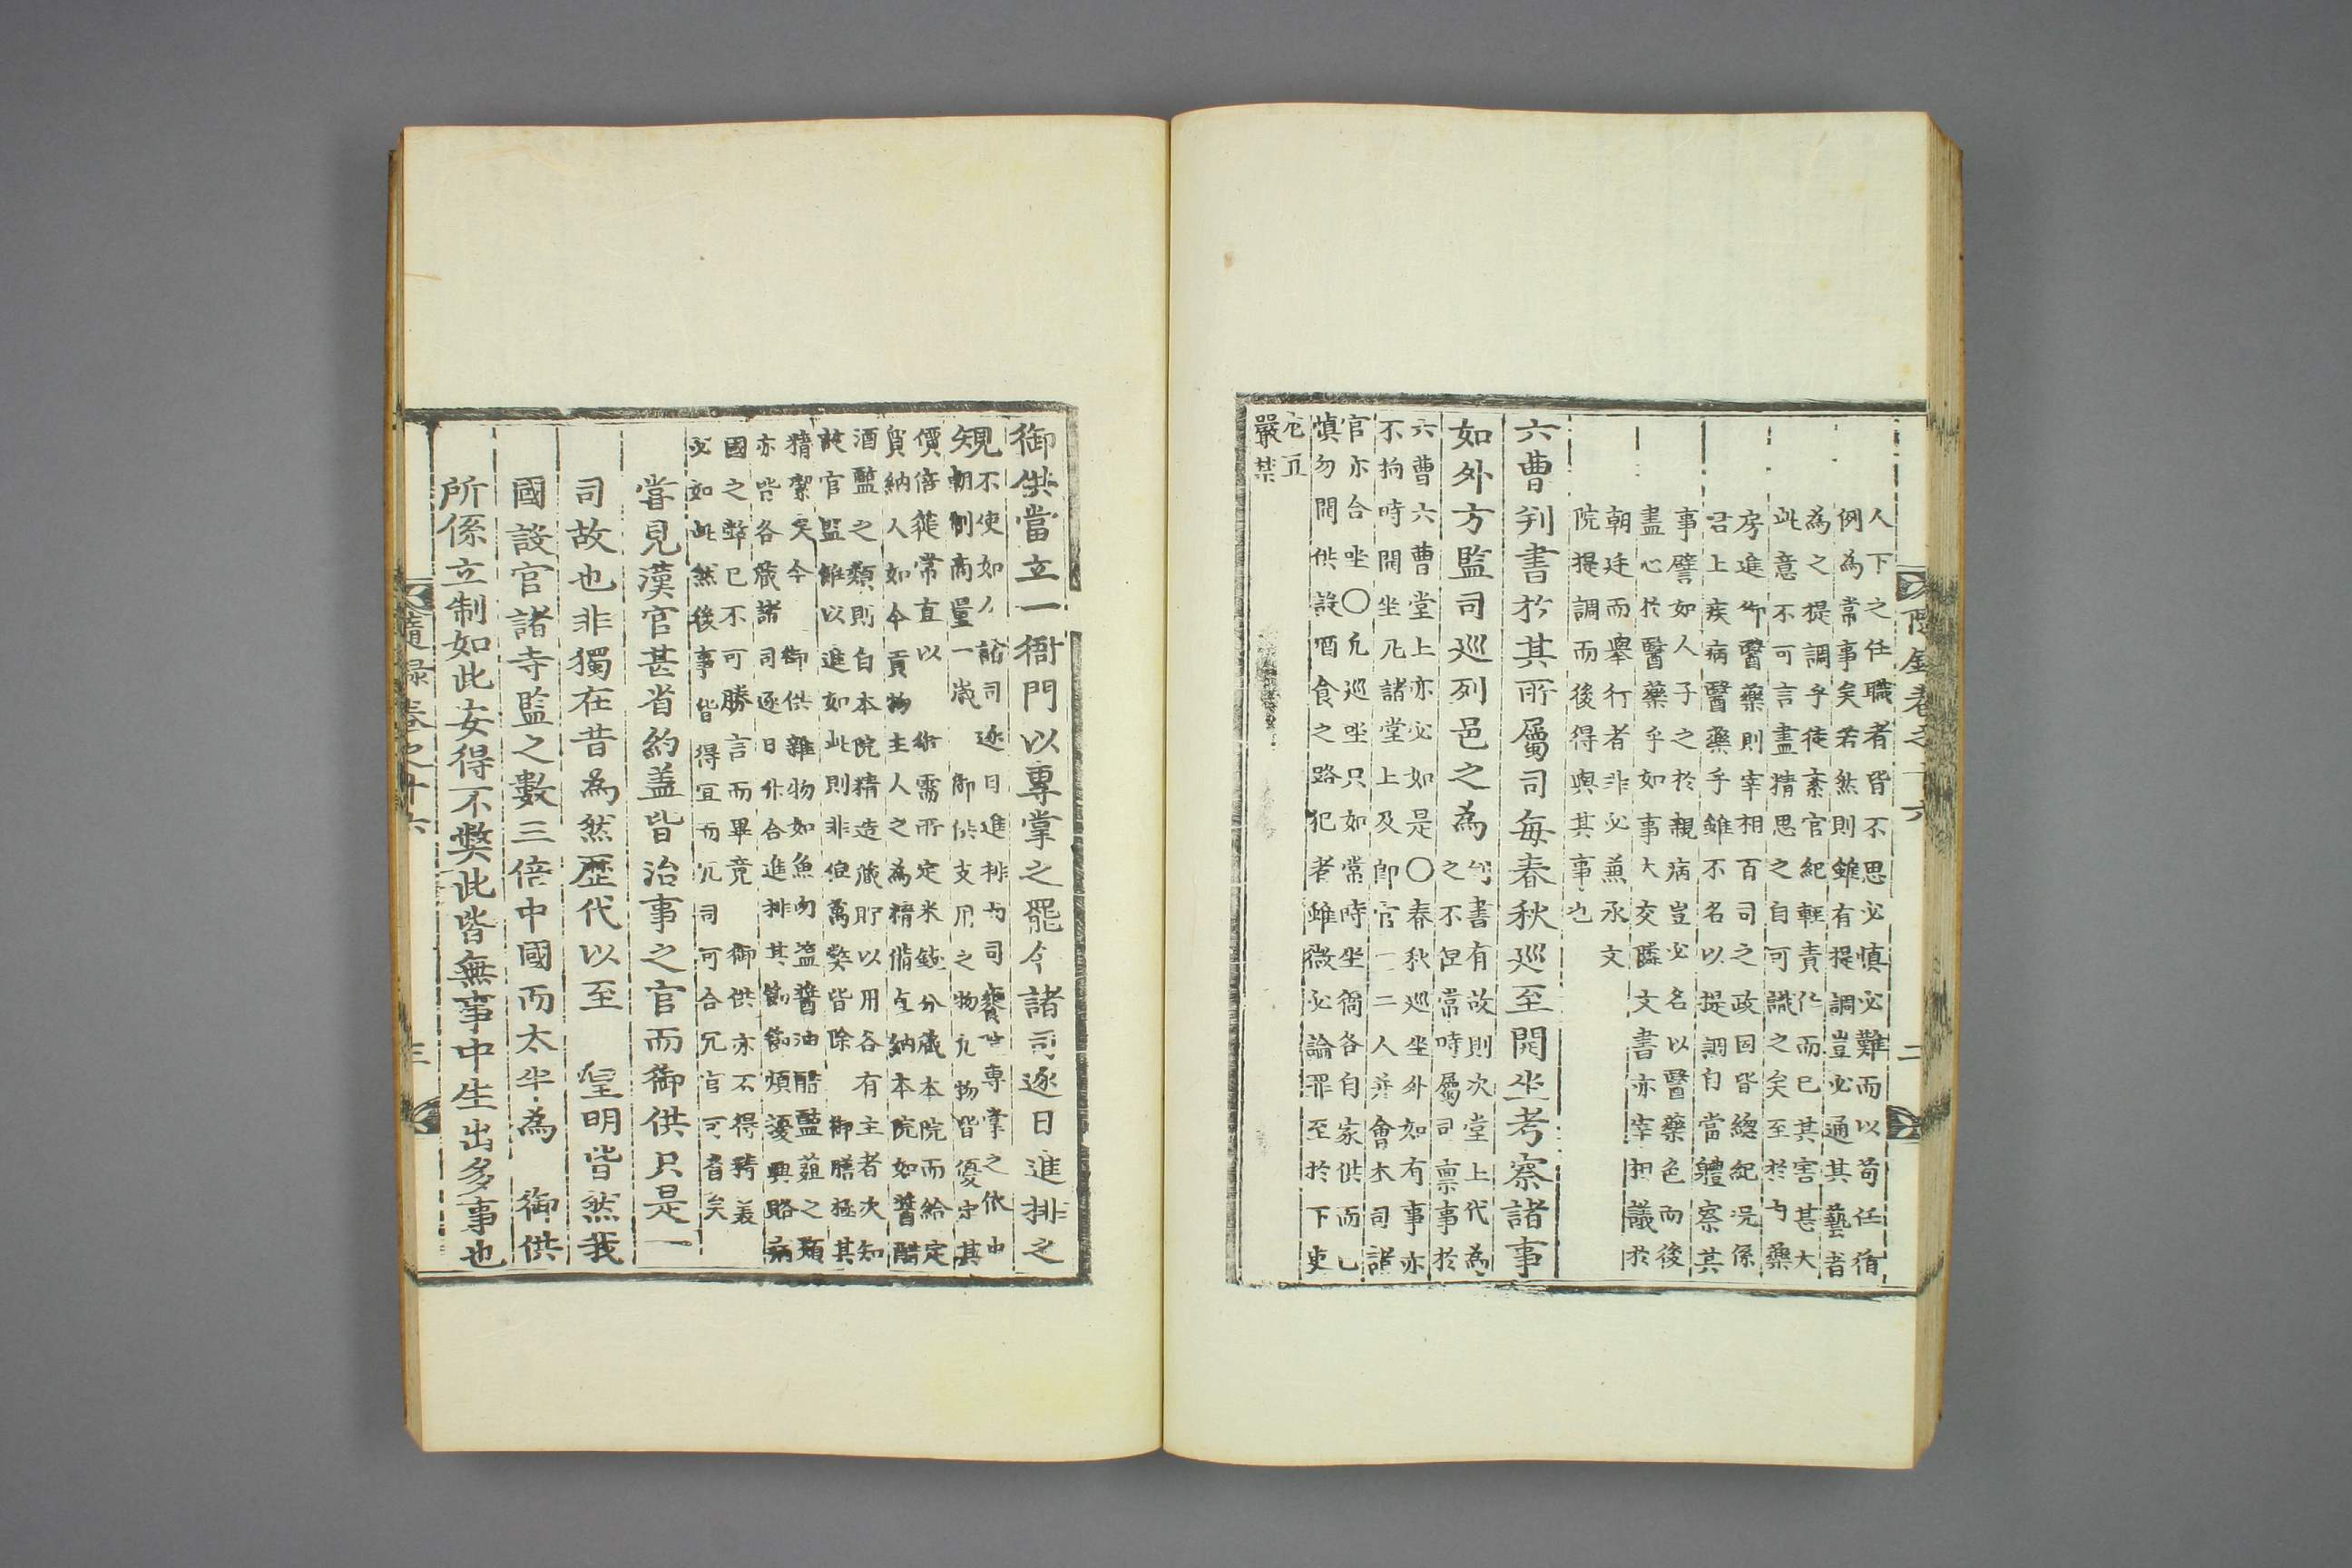 人下之任職者皆不思必慎必難而以苟任循
例為常事矣若然則雖有提調豈必通其藝者
為之提調乎徒紊官紀輕責任而已其害甚大
此意不可言盡精思之自可識之矣至於內藥
房進御醫藥則宰相百司之政固皆總紀況係
君上疾病醫藥乎雖不名以提調自當軆察其
事譬如人子之於親病豈必名以醫藥色而後
盡心於醫藥乎如事大交隣文書亦宰相議於
朝廷而舉行者非必兼承文
院提調而後得與其事也
六曹判書於其所屬司每春秋巡至開坐考察諸事
如外方監司巡列邑之為
判書有故則次堂上代為
之不但常時屬司禀事於
六曹六曹堂上亦必如是○春秋巡坐外如有事亦
不拘時開坐凡諸堂上及郎官一二人并會本司諸
官亦合坐○凡巡坐只如常時坐衙各自家供而已
慎勿開供設酒食之路犯者雖微必論罪至於下吏
尤宜
嚴禁
隨錄卷之十六 二
御供當立一衙門以專掌之罷今諸司逐日進排之
規
不使如今諸司逐日進排內司饔院專掌之依中
朝制商量一歲 御供支用之物凡物皆優定其
價倍蓰常直以 需所定米敍分藏本院而給定
貿納人如今貢物主人之為精備直納本院如醬醋
酒鹽之類則自本院精造藏貯以用各有主者次知
該官監雖以進如此則非但萬弊皆除 御膳極其
精潔矣今 御供雜物如魚肉鹽醬油醋鹽菹之類
亦皆各藏諸司逐日分合進排其節節煩擾與賂病
國之弊已不可勝言而畢竟 御供亦不得精美
必如此然後事皆得宜而凡司可合冗官可省矣
嘗見漢官甚省約盖皆治事之官而御供只是一
司故也非獨在昔為然歷代以至 皇明皆然我
國設官諸寺監之數三倍中國而太半為 御供
所係立制如此安得不弊此皆無事中生出多事也
隨錄卷之十六 三